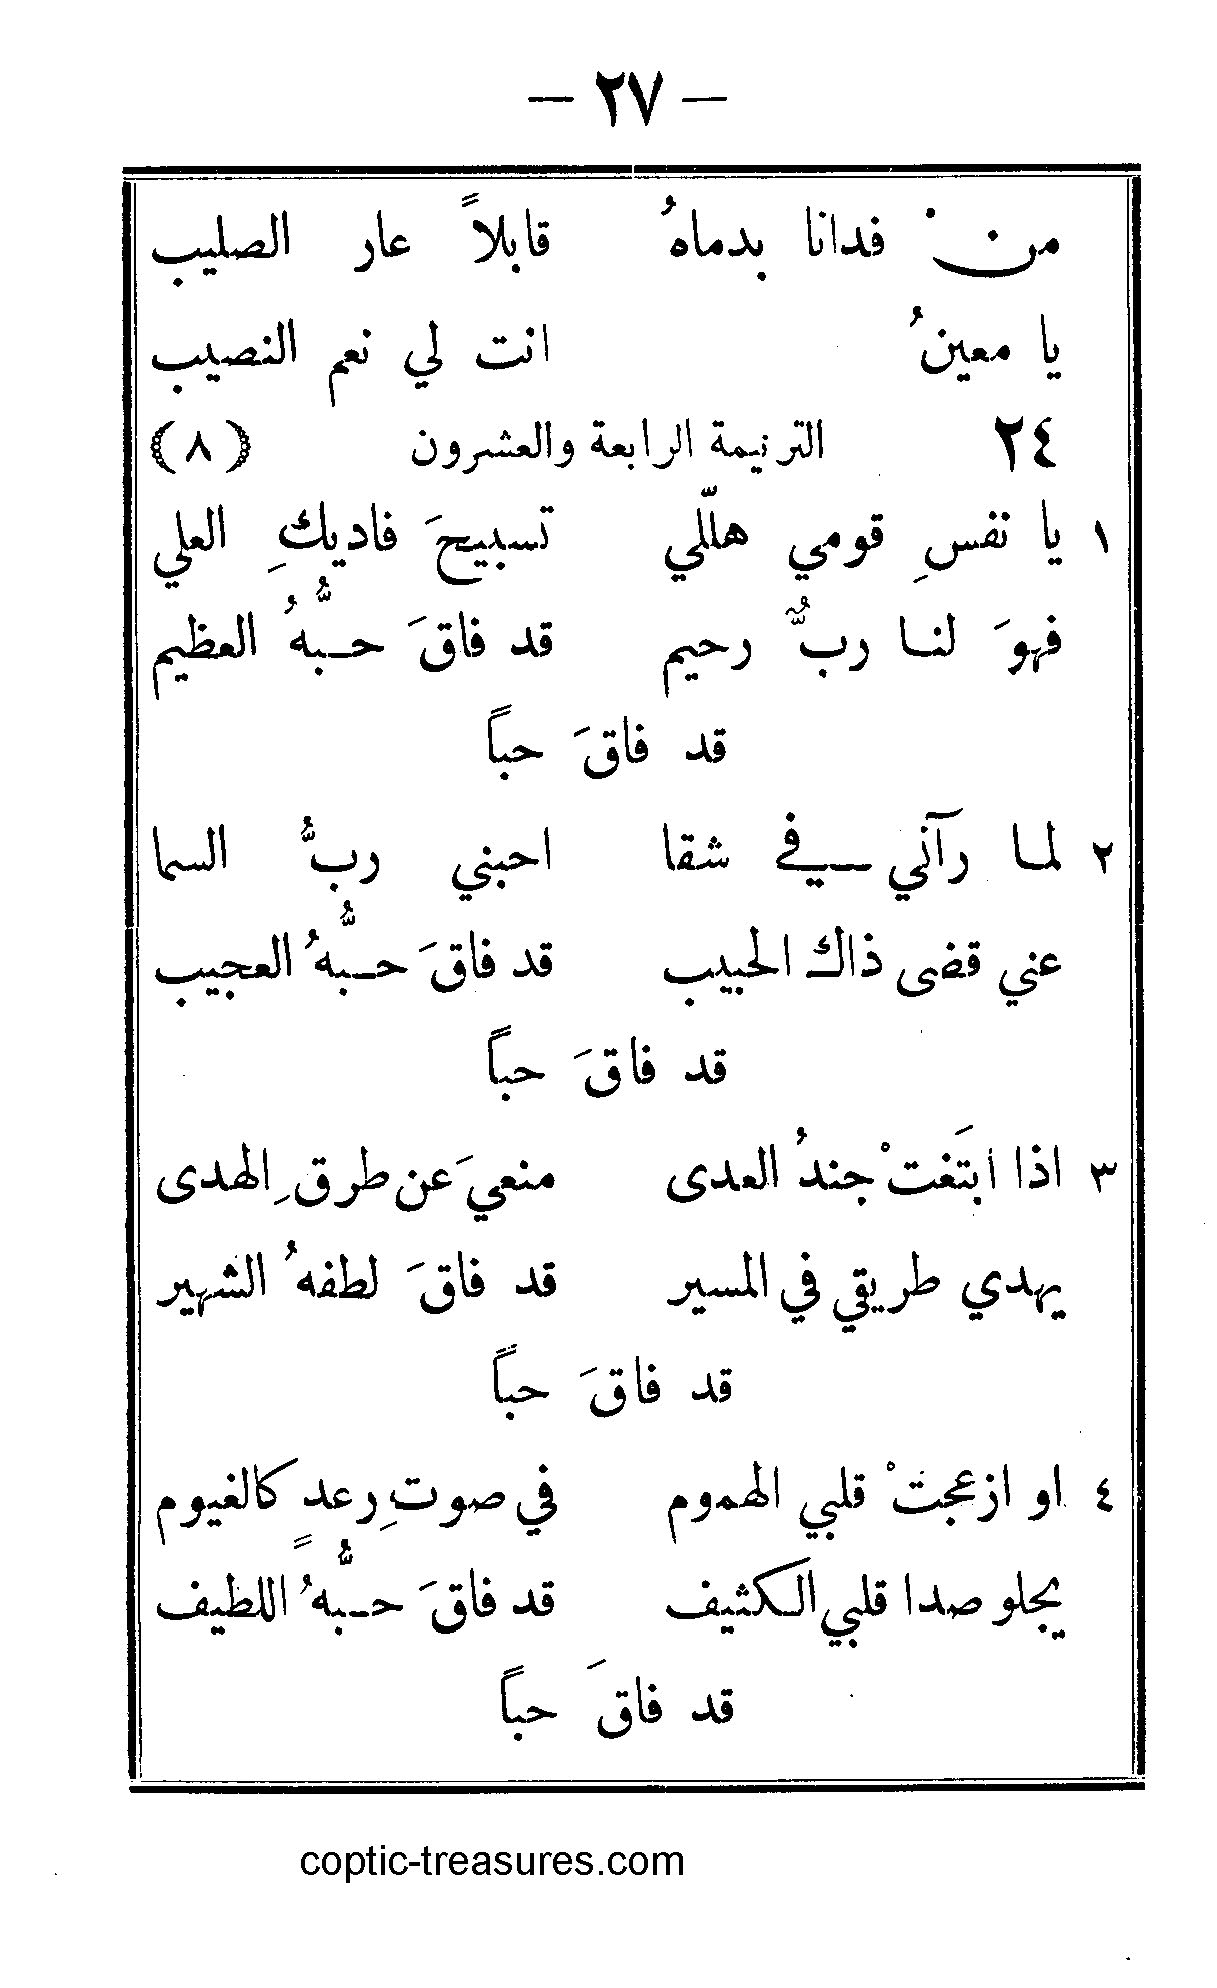 — ٢٧ —
من ْ فدانا بدماهُ قابلاً عار الصليب
يا معينُ انت لي نعم النصيب
٢٤ الترنيمة الرابعة والعشرون (٨)
١ يا نفسِ قومي هلّلي تسبيحَ فاديكِ العلي
فهوَ لنا ربٌّ رحيم قد فاقَ حبُّهُ العظيم
قد فاقَ حباً
٢ لما رآني في شقا احبني ربُّ السما
عني قضى ذاك الحبيب قد فاقَ حبُّهُ العجيب
قد فاقَ حباً
٣ اذا ابتَغتْ جندُ العدى منعيَ عن طرقِ الهدى
يهدي طريقي في المسير قد فاقَ لطفهُ الشهير
قد فاقَ حباً
٤ او ازعجتْ قلبي الهموم في صوتِ رعدٍ كالغيوم
يجلو صدا قلبي الكثيف قد فاقَ حبُّهُ اللطيف
قد فاقَ حباً
coptic-treasures.com